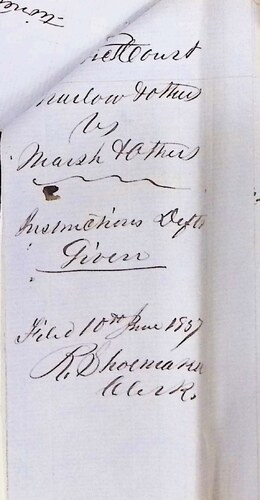 Court
& others
vs
Marsh & Others
Instructions Defts
Given
Filed 10th June 1857
R. Shoemaker
Clerk.